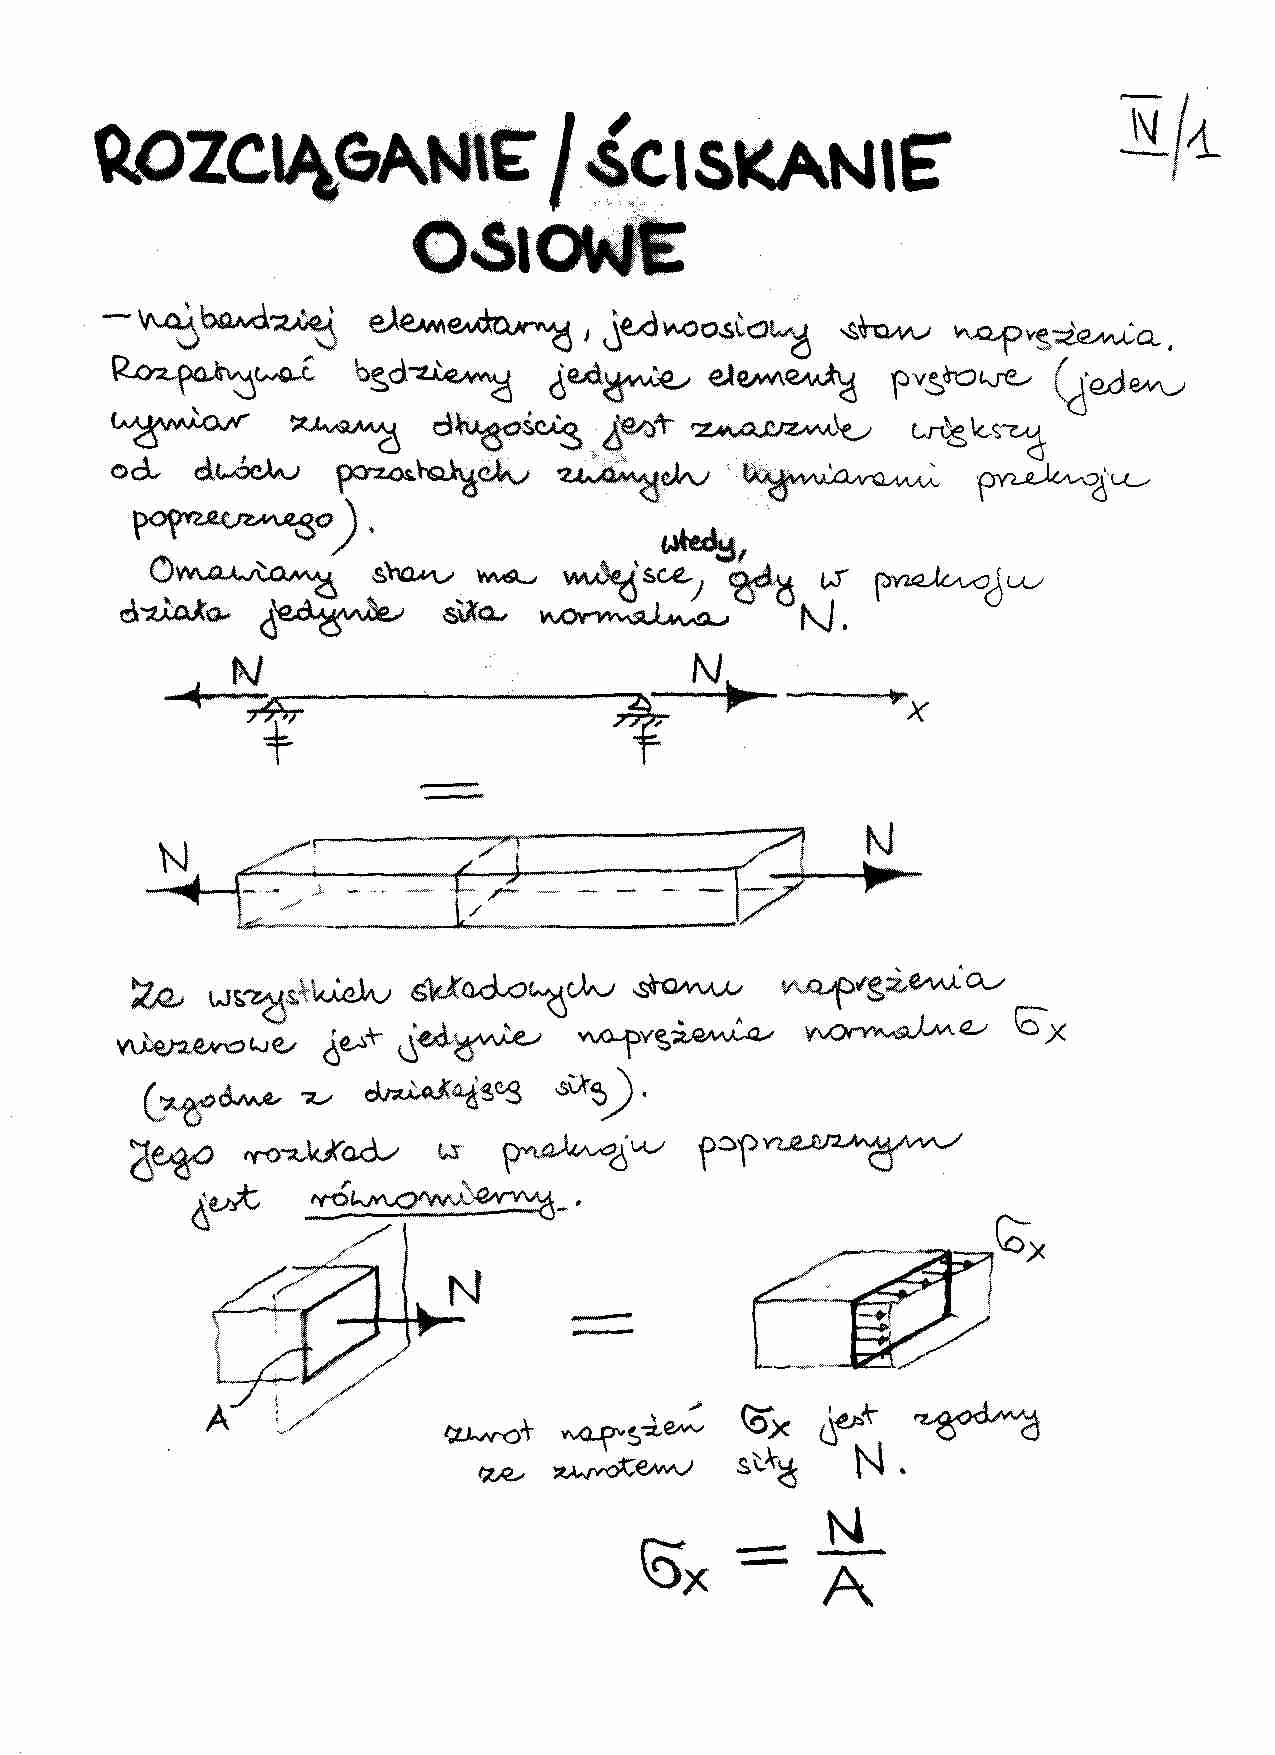 IV/1
ROZCIĄGANIE/ŚCISKANIE
OSIOWE
– najbardziej elementarny, jednoosiowy stan naprężenia.
Rozpatrywać będziemy jedynie elementy prętowe (jeden
wymiar zwany długością jest znacznie większy
od dwóch pozostałych zwanych wymiarami przekroju
poprzecznego).
wtedy,
Omawiany stan ma miejsce, gdy w przekroju
działa jedynie siła normalna N.
N N
x
=
N N
Ze wszystkich składowych stanu naprężenia
niezerowe jest jedynie naprężenie normalne σx
(zgodne z działającą siłą).
Jego rozkład w przekroju poprzecznym
jest równomierny.
σx
N
=
A
zwrot naprężeń σx jest zgodny
ze zwrotem siły N.
σx = N
A